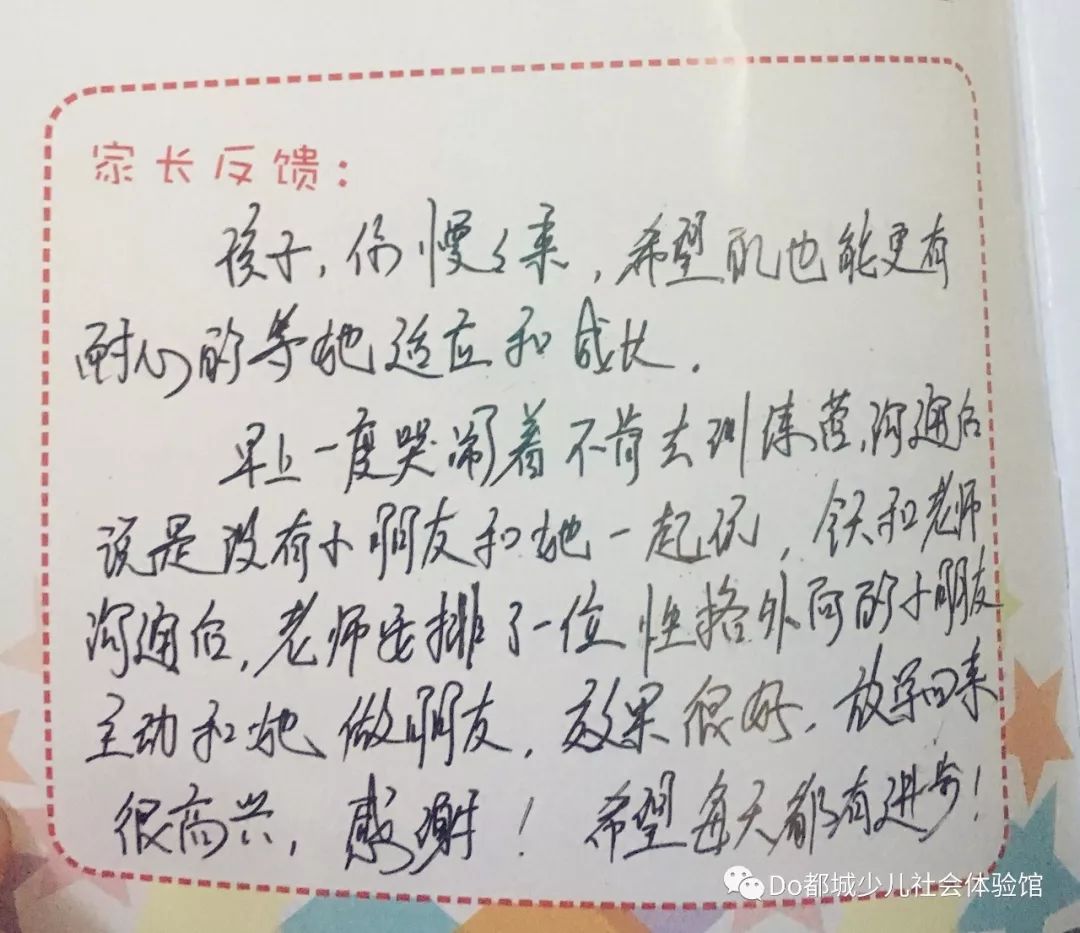 家长反馈：
孩子，你慢々来，希望我也能更有
耐心的等她适应和成长．
早上一度哭闹着不肯去训练营，沟通后
说是没有小朋友和她一起玩，今天和老师
沟通后，老师安排了一位性格外向的小朋友
主动和她做朋友．效果很好．放学回来
很高兴，感谢！希望每天都有进步！
Do都城少儿社会体验馆